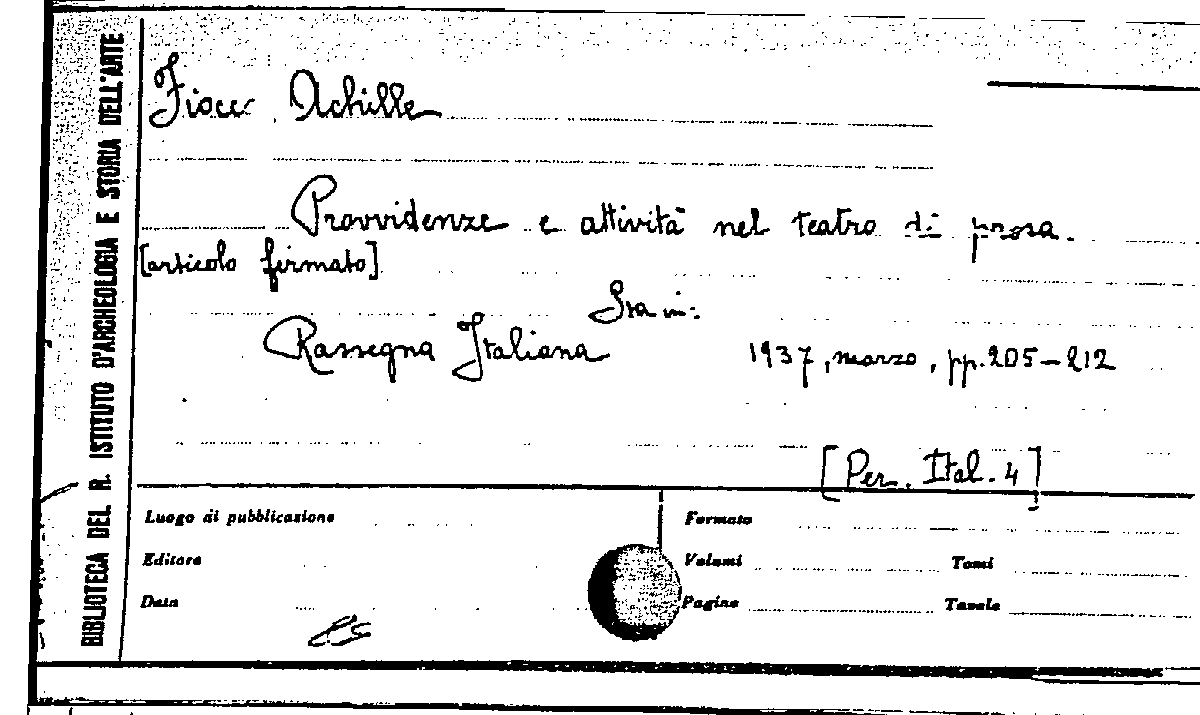 BIBLIOTECA DEL R. ISTITUTO D'ARCHEOLOGIA E STORIA DELL'ARTE
Achille
Provvidenze e attività nel teatro di prosa.
[articolo firmato]
Sta in:
Rassegna Italiana 1937, marzo, pp. 205-212
[Per. Ital. 4]
Luogo di pubblicazione
Formato
Editore
Volumi Tomi
Data
Pagine Tavole